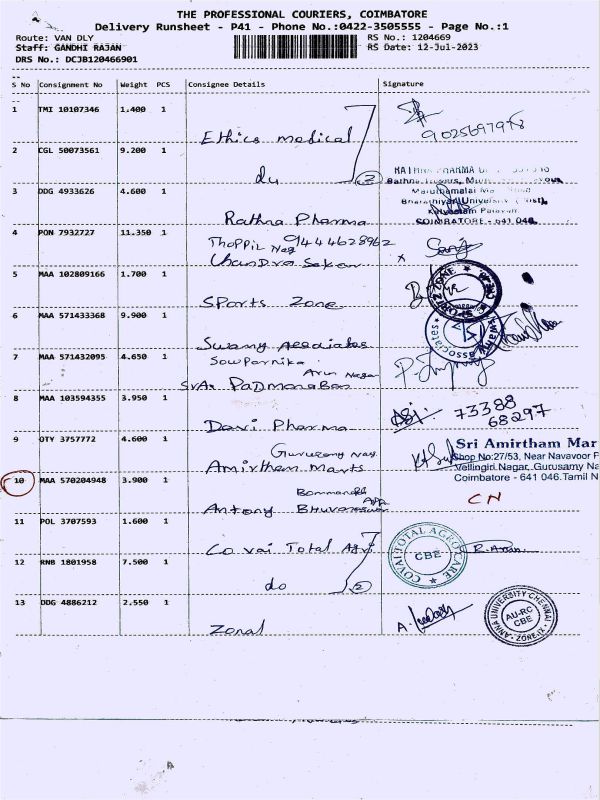 THE PROFESSIONAL COURIERS, COIMBATORE
Delivery Runsheet - P41 - Phone No.:0422-3505555 - Page No.:1
Route: VAN DLY
RS No.: 1204669
Staff: GANDHI RAJAN
RS Date: 12-Jul-2023
DRS No.: DCJB120466901
S No Consignment No Weight PCS Consignee Details Signature
1 TMI 10107346 1.400 1 Ethics medical
9025697978
2 CGL 50073561 9.200 1 du 2
3 DDG 4933626 4.600 1 Rathna Pharma
COIMBATORE - 641 046.
4 PON 7932727 11.350 1 Thoppil Nag 9444628962
Chandra Sekar
5 MAA 102809166 1.700 1 Sports Zone
6 MAA 571433368 9.900 1 Swamy Associates
7 MAA 571432095 4.650 1 Sowparnika
Arun Nagar
Padmanaban
8 MAA 103594355 3.950 1 Davi Pharma
73388
68297
9 OTY 3757772 4.600 1 Gurusamy Nag
Amirtham Marts
Sri Amirtham Mar
Shop No:27/53, Near Navavoor P
Vellingiri Nagar, Gurusamy Na
Coimbatore - 641 046.Tamil N
10 MAA 570204948 3.900 1
Antony Bhuvaneswari
CN
11 POL 3707593 1.600 1 Covai Total Agri
COVAI TOTAL AGROCARE
CBE
12 RNB 1801958 7.500 1 do 2
13 DDG 4886212 2.550 1 Zonal
ANNA UNIVERSITY CHENNAI
AU-RC
CBE